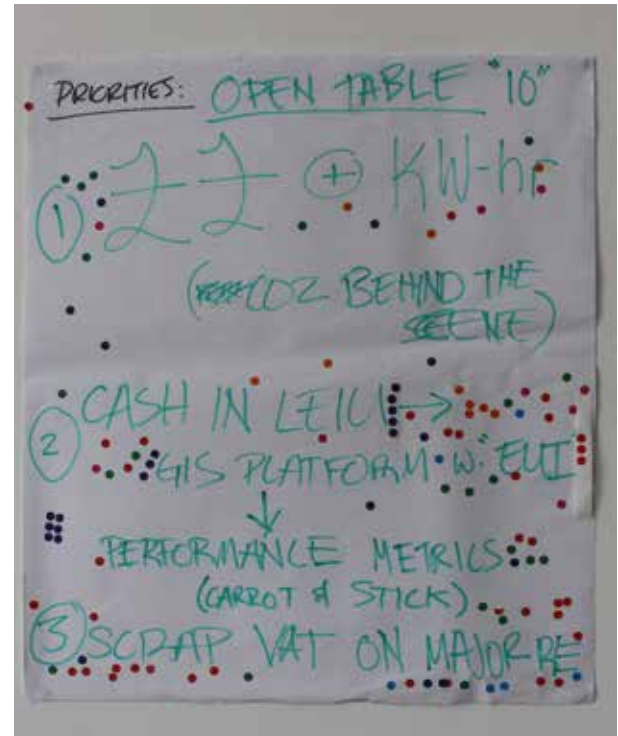 PRIORITIES: OPEN TABLE "10"
1 ££ + KW-hr
(CO2 BEHIND THE
SCENE)
2 CASH IN LEIU →
GIS PLATFORM W. "EUI"
↓
PERFORMANCE METRICS
(CARROT & STICK)
3 SCRAP VAT ON MAJOR RE